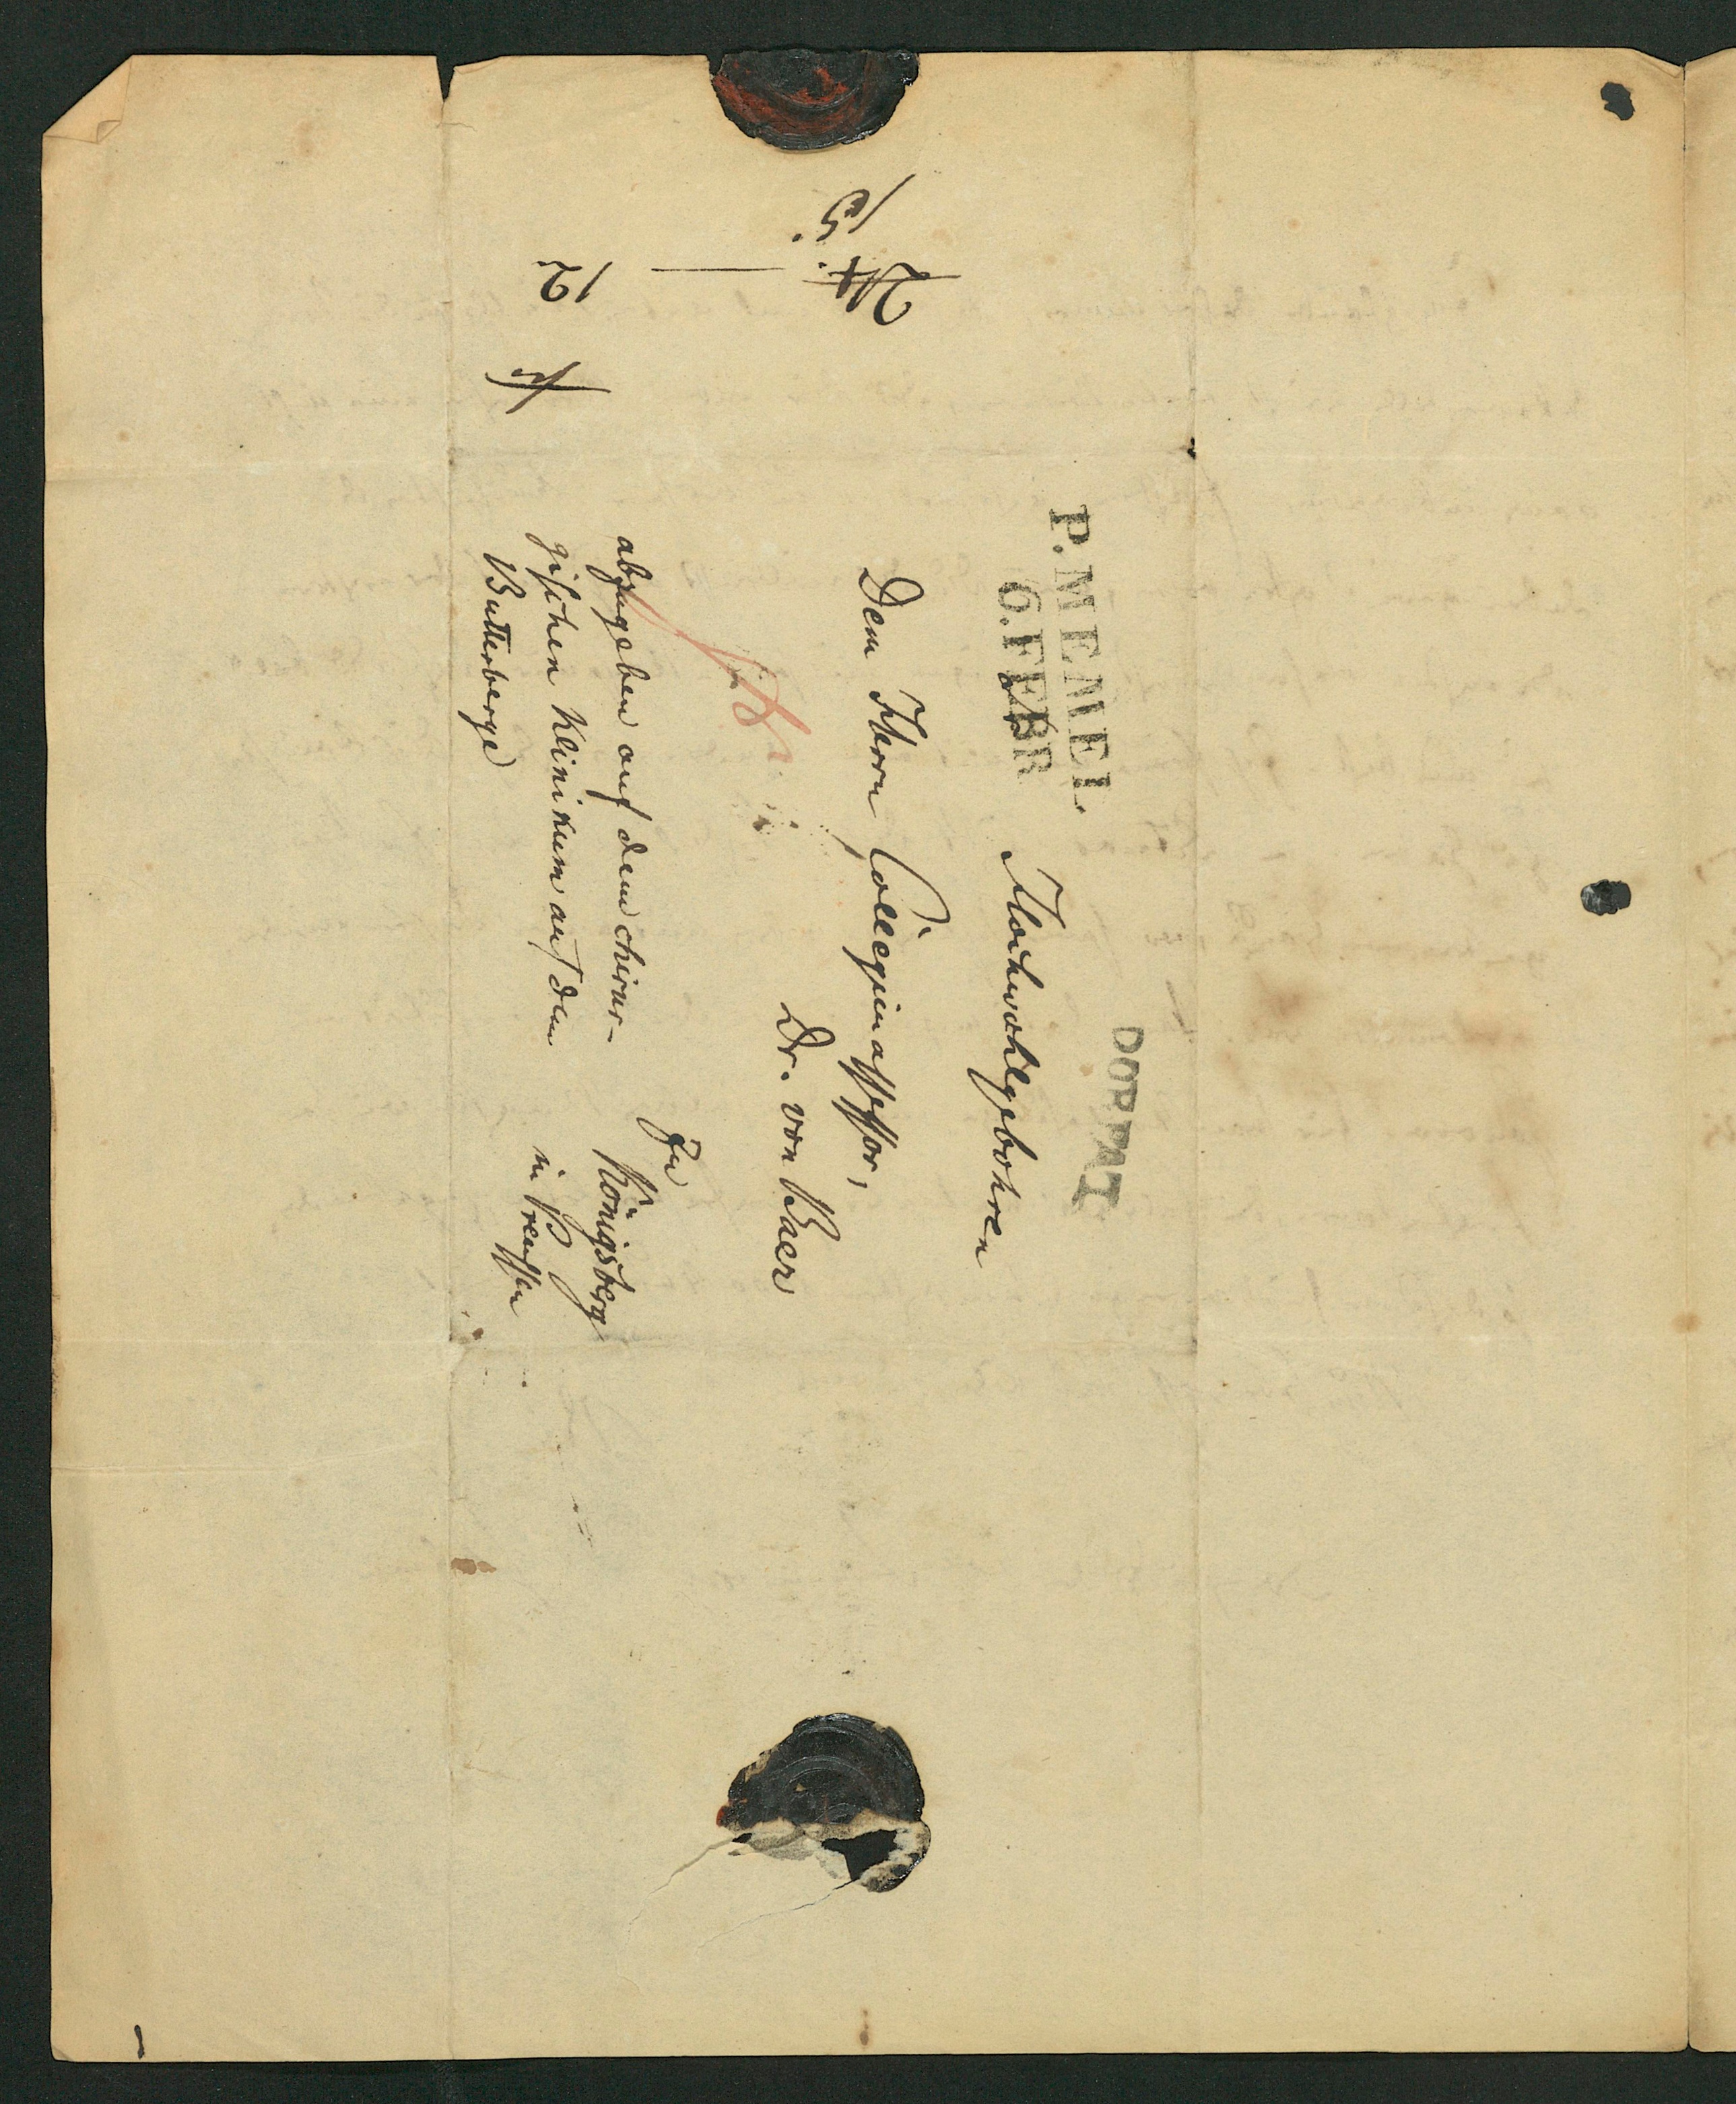 P. MEMEL
6. FEBR
DORPAT
Hochwohlgebohren
Dem Herrn Collegienassessor,
Dr. von Baer
Zu
Königsberg
in Preussen
abzugeben auf dem chirur-
gischen Klinikum auf dem
Butterberge
15.
24.
12